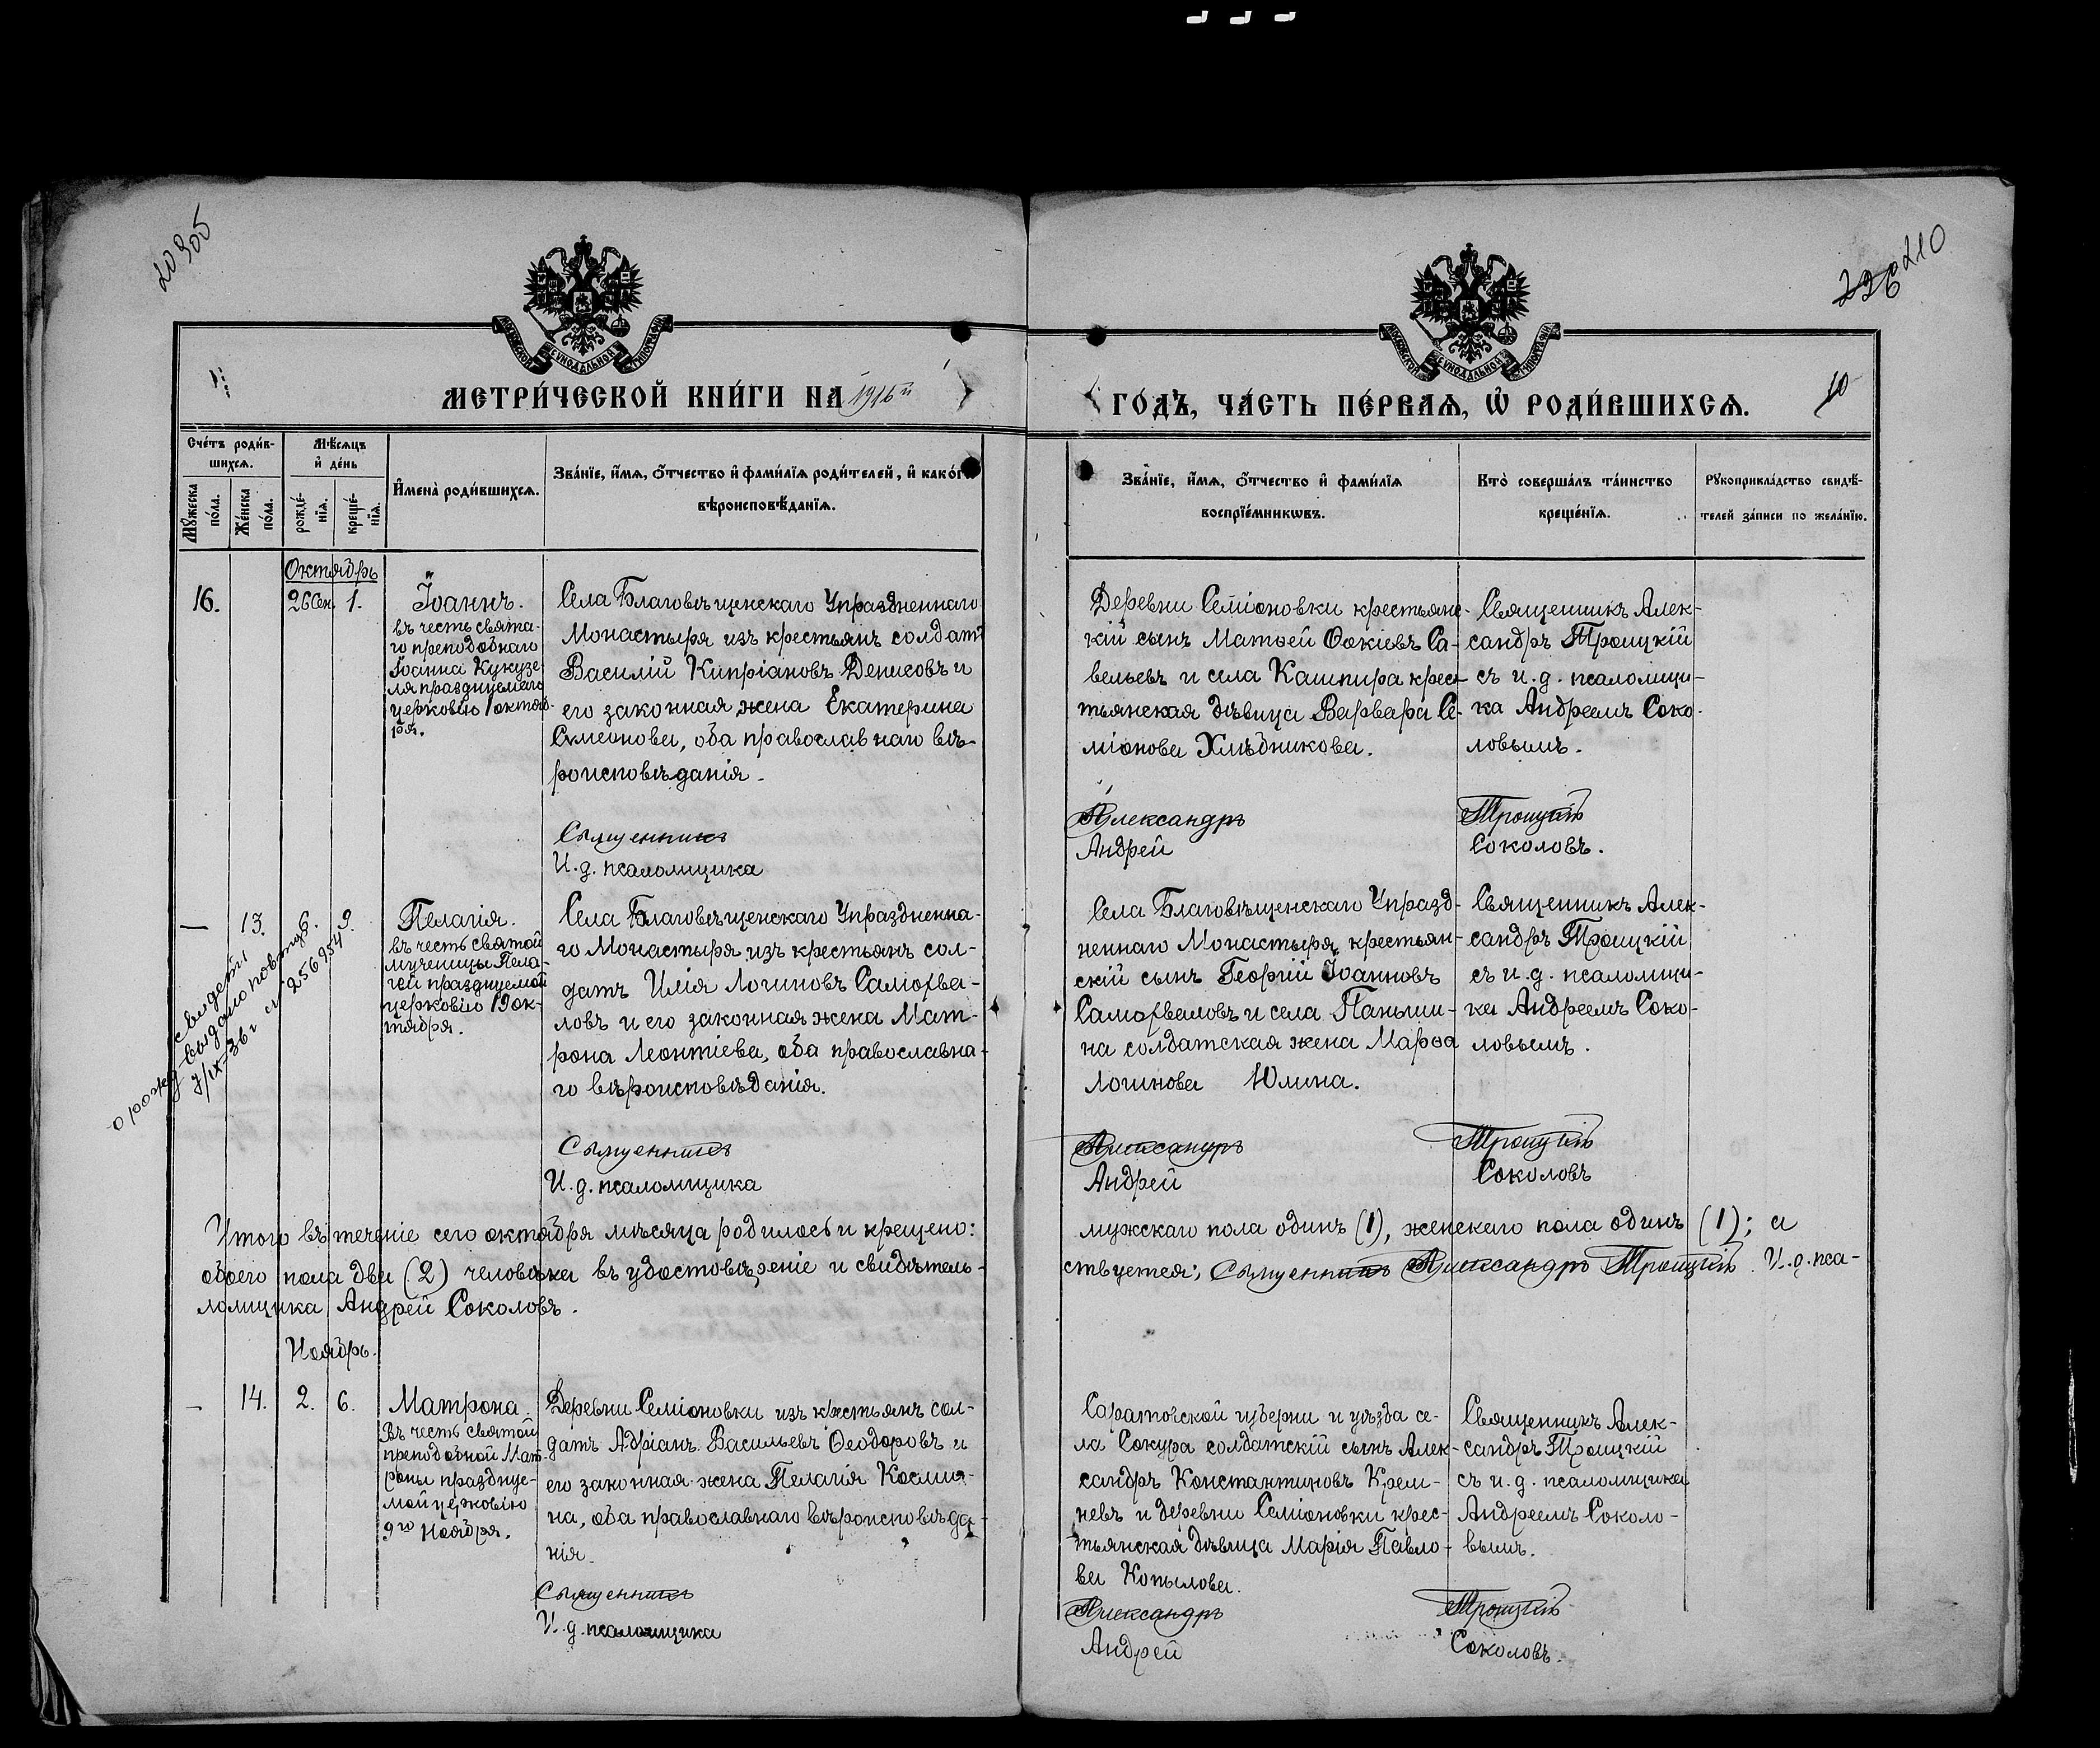 20 305
226 210
МЕТРИ́ЧЕСКОЙ КНИ́ГИ НА 1916й
ГО́ДЪ, ЧА́СТЬ ПЕ́РВАЯ, Ѡ҆ РОДИ́ВШИХСЯ.
10
Сче́тъ роди́в-
шихся.
Мѣ́сяцъ
и҆ де́нь
Мꙋ́жеска
по́ла.
Же́нска
по́ла.
рожде́-
нїя.
креще́-
нїя.
И҆мена̀ роди́вшихся.
Зва́нїе, и҆́мя, ѻ҆́тчество и҆ фами́лїя роди́телей, и҆ како́гѡ
вѣроисповѣ́данїя.
Зва́нїе, и҆́мя, ѻ҆́тчество и҆ фами́лїя
воспрїе́мникѡвъ.
Кто̀ соверша́лъ та́инство
креще́нїя.
Рꙋкоприкла́дство свидѣ́-
телей за́писи по жела́нїю.
Октябрь
16.
26 Сен.
1.
Іоаннъ.
въ честь свята-
го преподобнаго
Іоанна Кукузе-
ля празднуемаго
церковію 1 октяб-
ря.
Села Благовѣщенскаго Упраздненнаго
Монастыря изъ крестьянъ солдатъ
Василій Кипріановъ Денисовъ и
его законная жена Екатерина
Симеонова, оба православнаго вѣ-
роисповѣданія.
Деревни Семіоновки крестьянс-
кій сынъ Матѳей Ѳокіевъ Са-
вельевъ и села Кашпира крес-
тьянская дѣвица Варвара Се-
міонова Хлѣбникова.
Священникъ Алек-
сандръ Троицкій
съ и.д. псаломщи-
ка Андреемъ Соко-
ловымъ.
Священникъ
Александръ
Троицкій
И.д. псаломщика
Андрей
Соколовъ.
—
13.
6.
9.
Пелагія.
въ честь святой
мученицы Пела-
геи празднуемой
церковію 19 ок-
тября.
Села Благовѣщенскаго Упраздненна-
го Монастыря изъ крестьянъ сол-
датъ Илія Логиновъ Самохва-
ловъ и его законная жена Мат-
рона Леонтіева, оба православна-
го вѣроисповѣданія.
Села Благовѣщенскаго Упразд-
неннаго Монастыря крестьян-
скій сынъ Георгій Іоанновъ
Самохваловъ и села Паньши-
на солдатская жена Марѳа
Логинова Юлина.
Священникъ Алек-
сандръ Троицкій
съ и.д. псаломщи-
ка Андреемъ Соко-
ловымъ.
свидет
о рожд выдано повтор
7/IX-36 г
256954
Священникъ
Александръ
Троицкій
И.д. псаломщика
Андрей
Соколовъ
Итого въ теченіе сего октября мѣсяца родилось и крещено:
мужскаго пола одинъ (1), женскаго пола одинъ (1); а
обоего пола два (2) человѣка въ удостовѣреніе и свидѣтель-
ствуется: Священникъ Александръ Троицкій. И.д. пса-
ломщика Андрей Соколовъ.
Ноябрь.
—
14.
2.
6.
Матрона.
Въ честь святой
преподобной Мат-
роны празднуе-
мой церковію
9го Ноября.
Деревни Семіоновки изъ крестьянъ сол-
датъ Адріанъ Васильевъ Ѳеодоровъ и
его законная жена Пелагія Космин-
на, оба православнаго вѣроисповѣда-
нія.
Саратовской губерни и уѣзда се-
ла Сокура солдатскій сынъ Алек-
сандръ Константиновъ Крем-
невъ и деревни Семіоновки крес-
тьянская дѣвица Марія Павло-
ва Копылова.
Священникъ Алек-
сандръ Троицкій
съ и.д. псаломщика
Андреемъ Соколо-
вымъ.
Священникъ
Александръ
Троицкій
И.д. псаломщика
Андрей
Соколовъ.